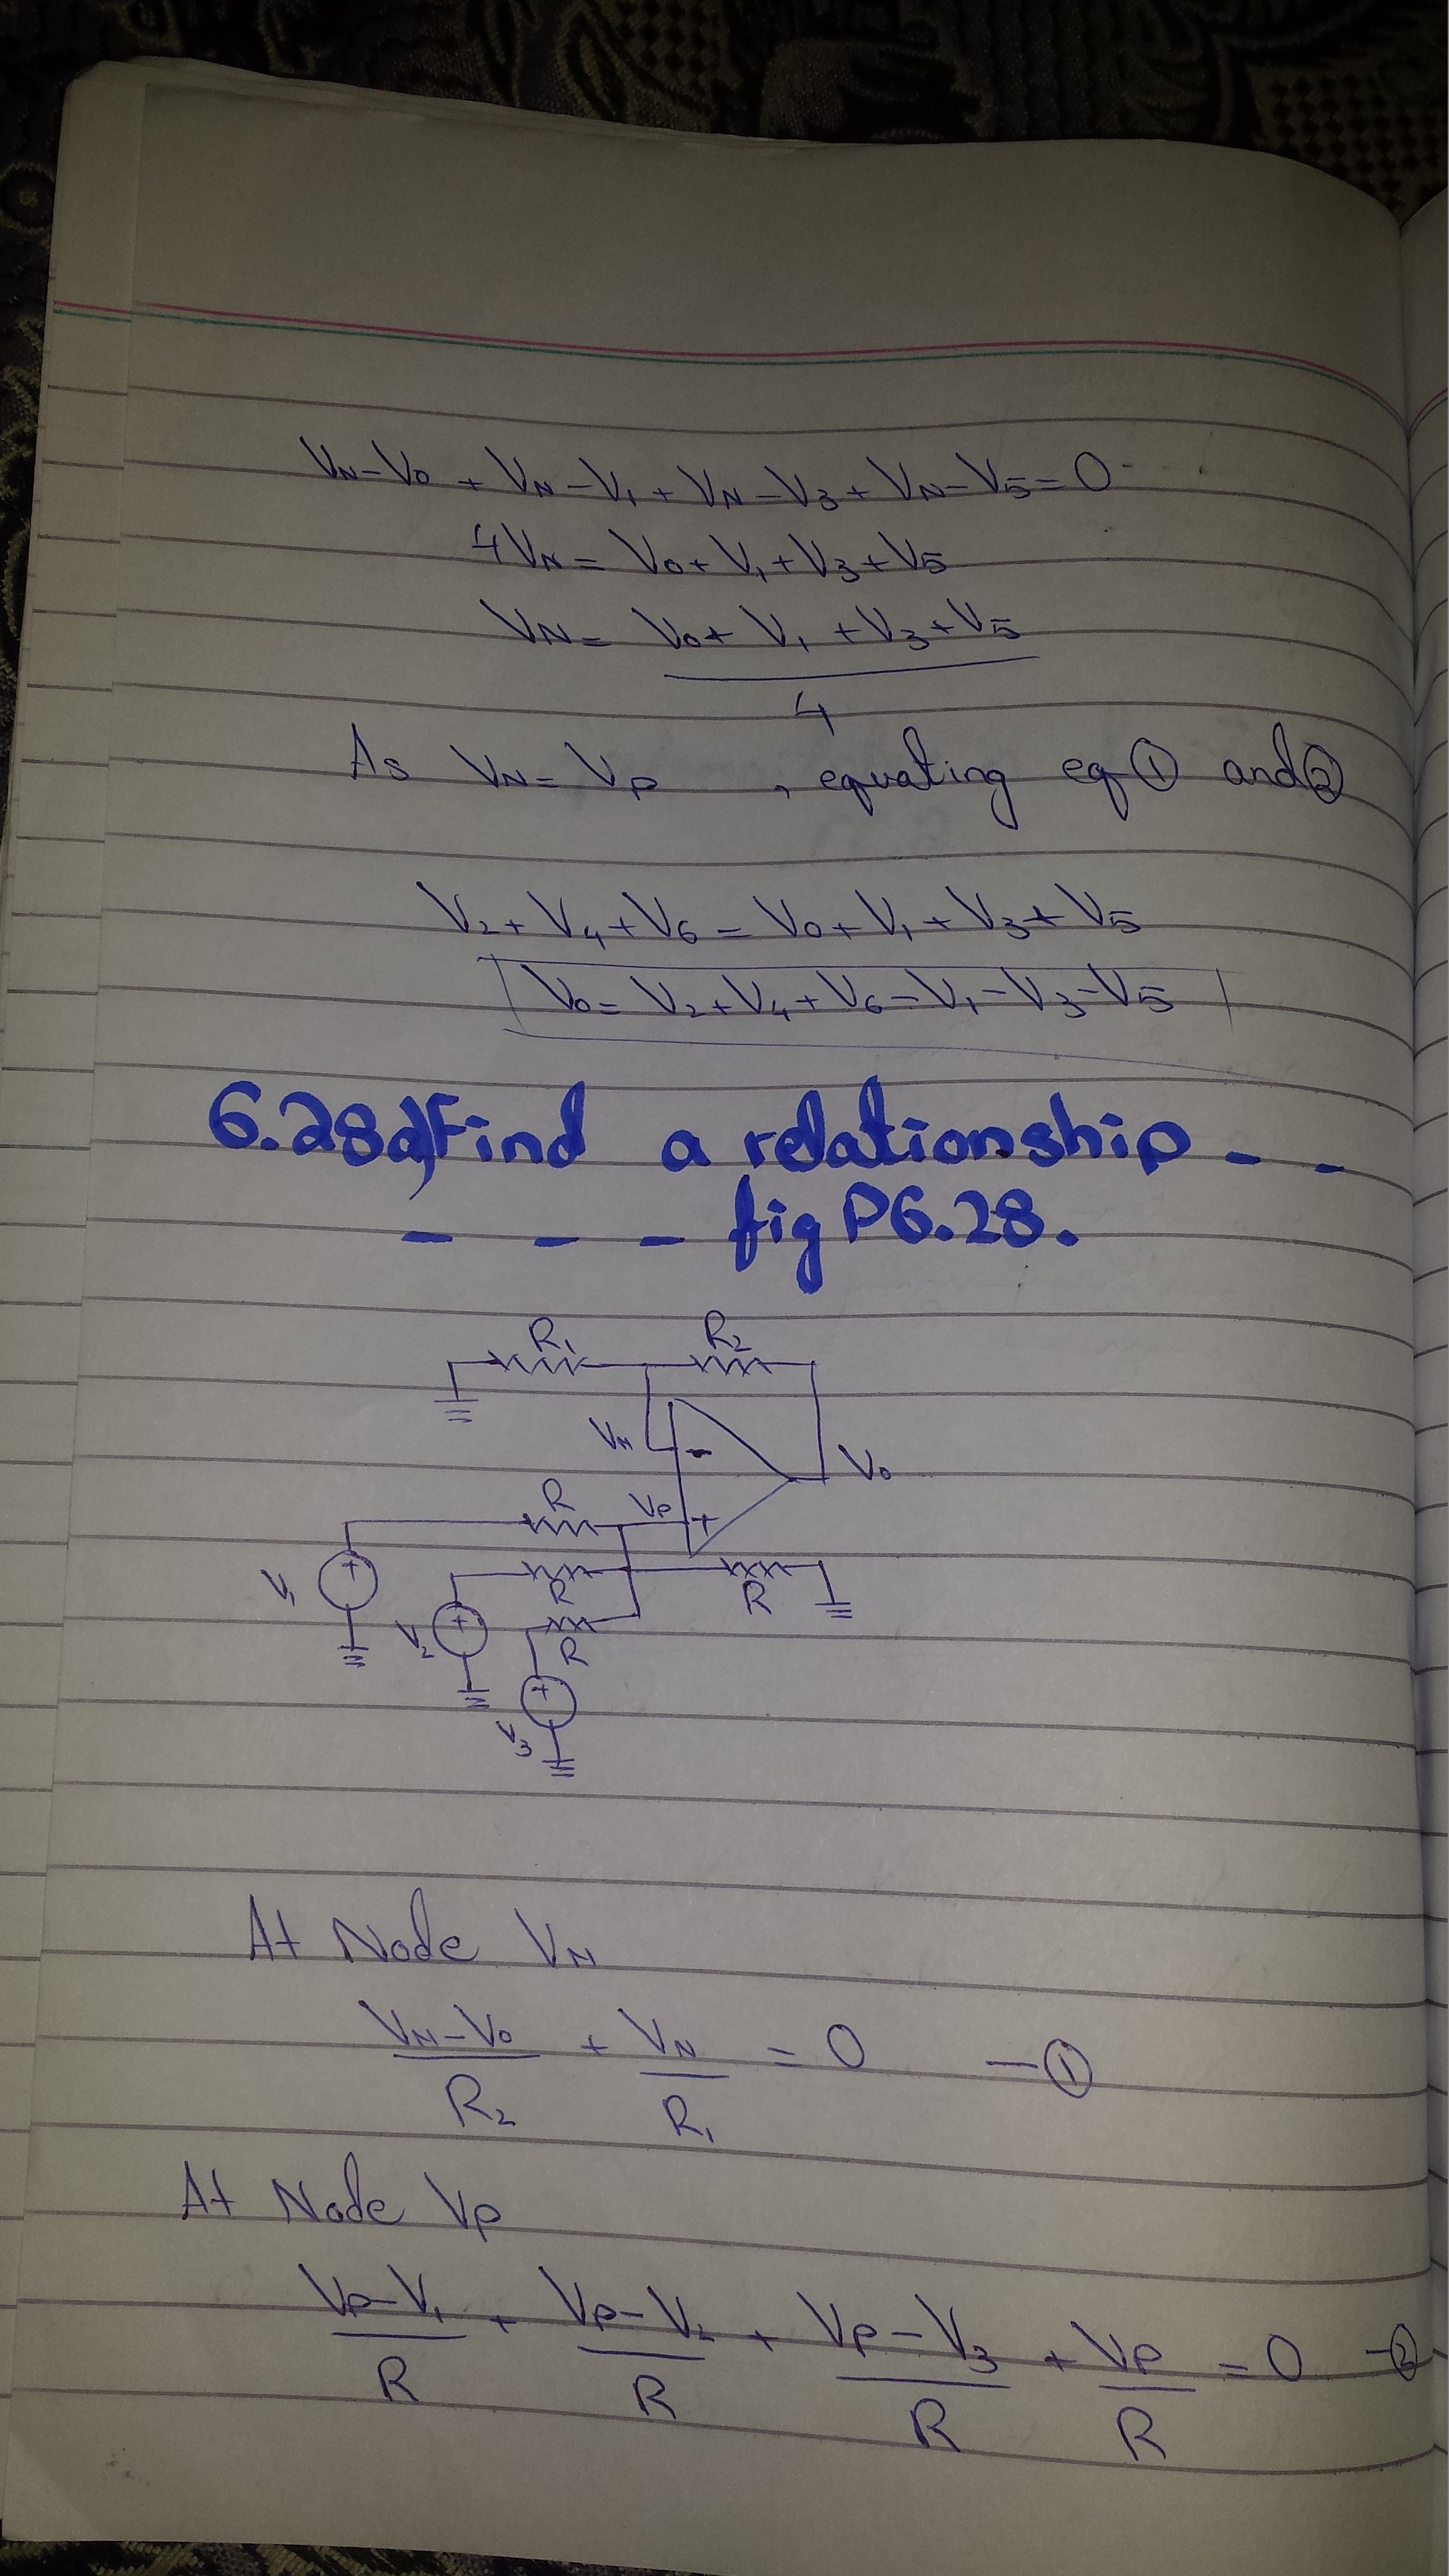 VN-V0 + VN-V1 + VN-V3 + VN-V5 = 0
4VN = V0 + V1 + V3 + V5
VN = V0 + V1 + V3 + V5
4
As VN = VP , equating eq ① and ②
V2 + V4 + V6 = V0 + V1 + V3 + V5
V0 = V2 + V4 + V6 - V1 - V3 - V5
6.28a) Find a relationship - -
- - - fig P6.28.
R1 R2
VN -
V0
R VP +
V1 +
R R
V2 +
R
+
V3
At Node VN
VN-V0 + VN = 0 -①
R2 R1
At Node VP
VP-V1 + VP-V2 + VP-V3 + VP = 0 -②
R R R R